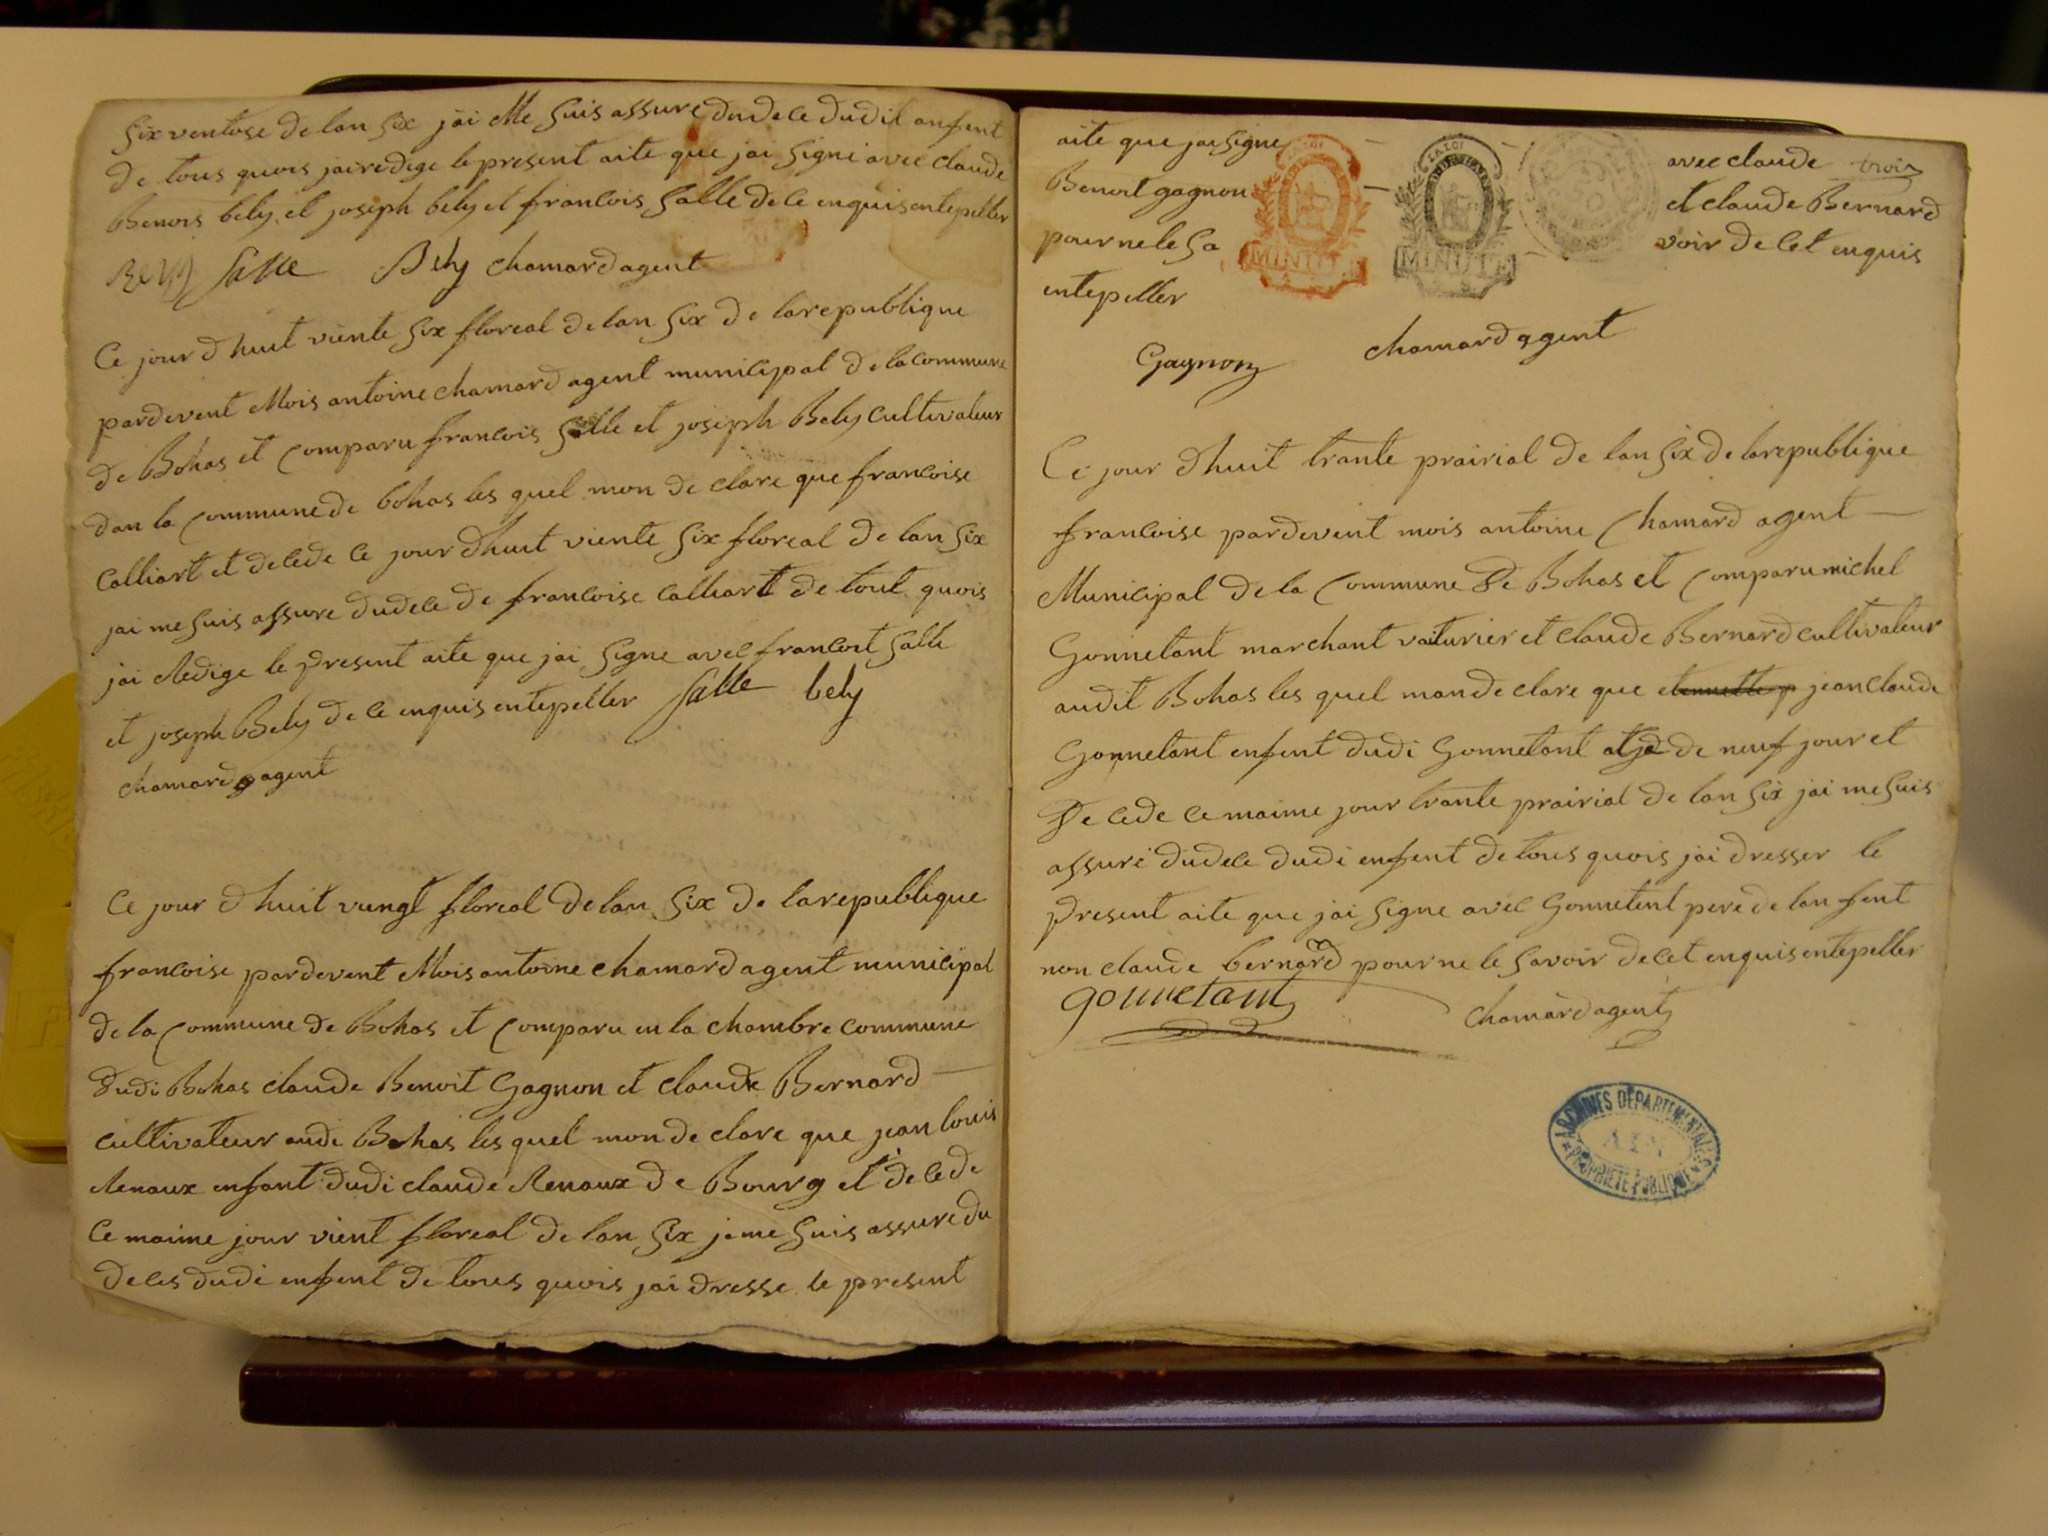 six ventose de lan six jai Me suis assure du dece dudit anfent
de tous quois jairedige le present aite que jai signé avec claude
Benois bely et joseph bely et francois salle de ce enquis entepeller
Bely salle Bely chamard agent
Ce jour dhuit viente six floreal de lan six de larepublique
pardevent Mois antoine chamard agent municipal de lacommune
de Bohas et comparu francois salle et joseph Bely cultivateur
dan la commune de bohas les quel mon de clare que francoise
calliart et decede ce jour dhuit viente six floreal de lan six
jai me suis assure dudece de francoise calliart de tout quois
jai Redige le present aite que jai signe avec francoit salle
et joseph Bely de ce enquis entepeller salle bely
chamard agent
Ce jour dhuit vungt floreal de lan six de larepublique
francoise pardevent Mois antoine chamard agent municipal
de la commune de Bohas et comparu en la chambre commune
dudi Bohas claude Benoit Gagnon et claude Bernard
cultivateur audi Bohas les quel mon de clare que jean louis
Renaux enfant dudi claude Renaux de Bourg et de cede
Ce maime jour vient floreal de lan six je me suis assure du
deces dudi enfent de tous quois jai dresse le present
aite que jai signe avec claude trois
Benoit gagnon et claude Bernard
pour ne le sa voir de cet enquis
entepeller
LA LOI
MINUTE
LA LOI
MINUTE
Gagnon chamard agent
Ce jour dhuit trante prairial de lan six de larepublique
francoise pardevent mois antoine chamard agent
Municipal de la commune de Bohas et comparu michel
Gonnetant marchant voiturier et claude Bernard cultivateur
audit Bohas les quel mon de clare que jean claude
Gonnetant enfent dudi Gonnetant atjé de neuf jour et
De cede ce maime jour trante prairial de lan six jai me suis
assuré dudece dudi enfent de tous quois jai dresser le
present aite que jai signe avec Gonnetent pere de lan fent
non claude bernard pour ne le savoir de cet enquis entepeller
gonnetant chamard agent
ARCHIVES DÉPARTEMENTALES
AIN
PROPRIÉTÉ PUBLIQUE